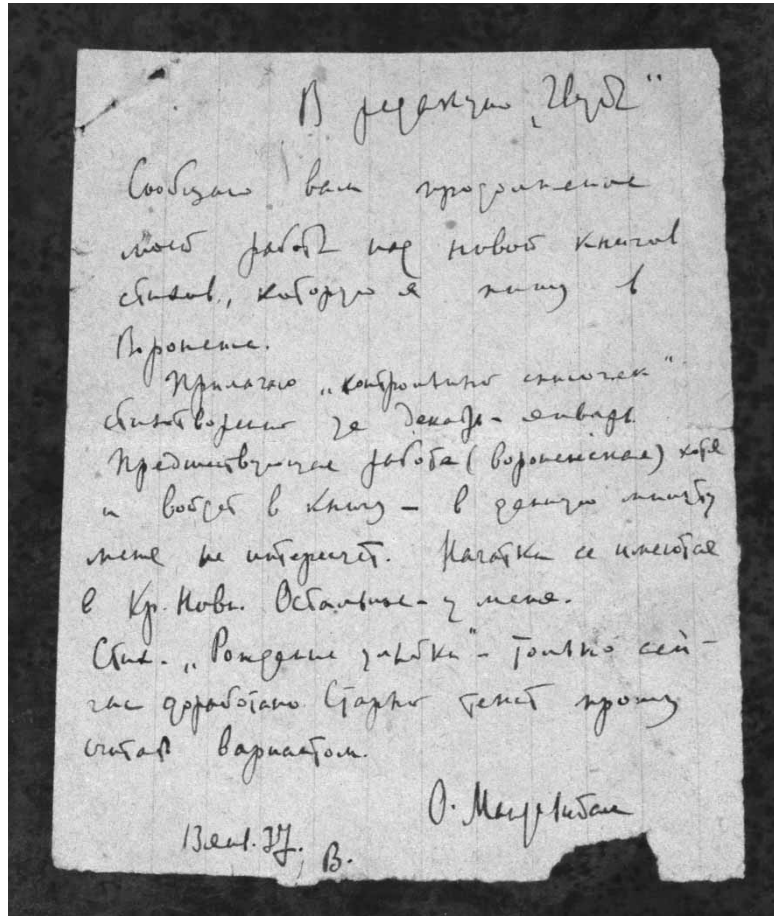 В редакцию „Звезд“
Сообщаю вам продолжение
моей работы над новой книгой
стихов, которую я пишу в
Воронеже.
Прилагаю „контрольный списочек“
стихотворений за декабрь-январь.
Предшествующая работа (воронежская) хотя
и войдет в книгу – в данную минуту
меня не интересует. Начатки ее имеются
в Кр. Нови. Остальные – у меня.
Стих. „Рождение улыбки“ – только сей-
час доработано. Старый текст прошу
считать вариантом.
О. Мандельштам
13 янв. 37, В.